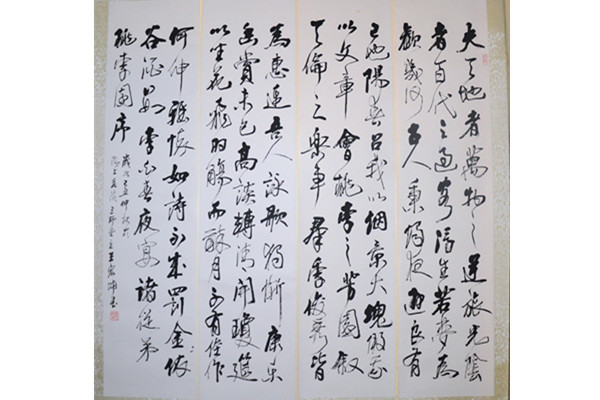 夫天地者萬物之逆旅光陰
者百代之過客浮生若夢為
歡幾何古人秉燭夜遊良有
已也陽春召我以烟景大塊假我
以文章會桃李之芳園叙
天倫之樂事群季俊秀皆
為惠連吾人詠歌獨慚康樂
幽賞未已高談轉清開瓊筵
以坐花飛羽觴而醉月不有佳作
何伸雅懷如詩不成罰金依
谷酒數李白春夜宴諸從弟
桃李園序